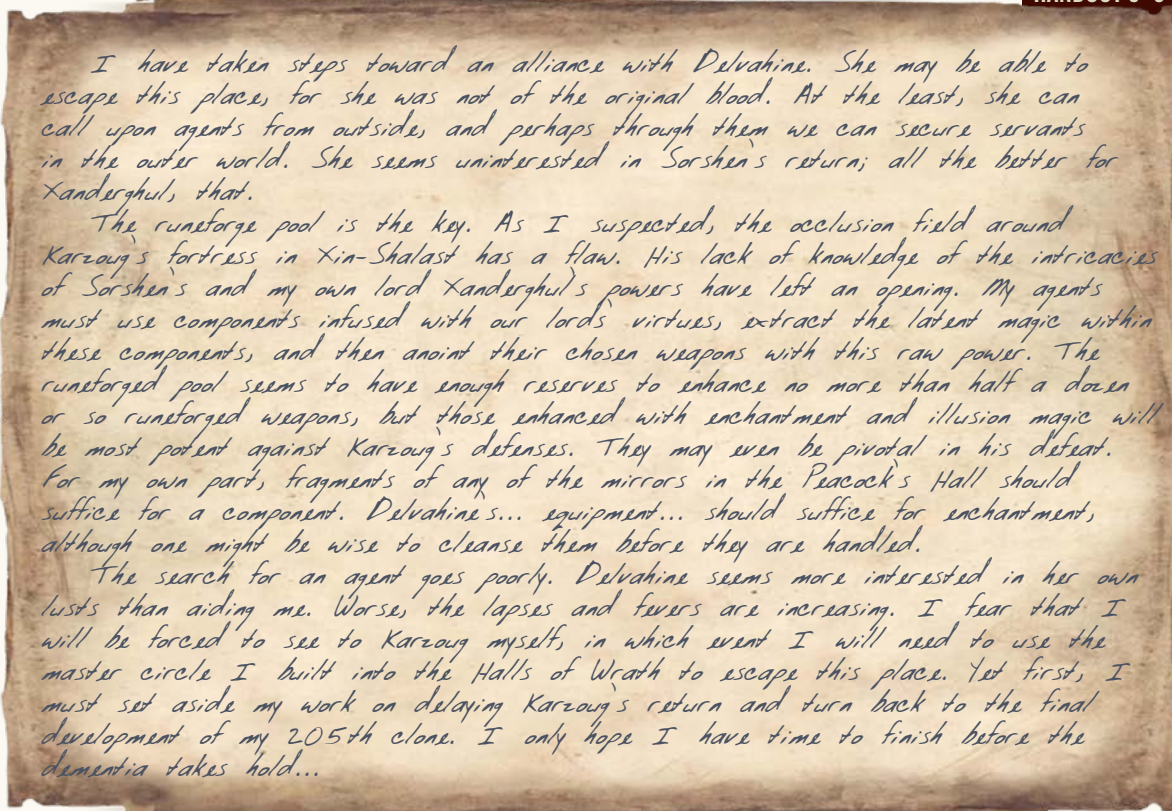 I have taken steps toward an alliance with Delvahine. She may be able to
escape this place, for she was not of the original blood. At the least, she can
call upon agents from outside, and perhaps through them we can secure servants
in the outer world. She seems uninterested in Sorshen's return; all the better for
Xanderghul, that.
The runeforge pool is the key. As I suspected, the occlusion field around
Karzoug's fortress in Xin-Shalast has a flaw. His lack of knowledge of the intricacies
of Sorshen's and my own lord Xanderghul's powers have left an opening. My agents
must use components infused with our lords' virtues, extract the latent magic within
these components, and then anoint their chosen weapons with this raw power. The
runeforged pool seems to have enough reserves to enhance no more than half a dozen
or so runeforged weapons, but those enhanced with enchantment and illusion magic will
be most potent against Karzoug's defenses. They may even be pivotal in his defeat.
For my own part, fragments of any of the mirrors in the Peacock's Hall should
suffice for a component. Delvahine's... equipment... should suffice for enchantment,
although one might be wise to cleanse them before they are handled.
The search for an agent goes poorly. Delvahine seems more interested in her own
lusts than aiding me. Worse, the lapses and fevers are increasing. I fear that I
will be forced to see to Karzoug myself, in which event I will need to use the
master circle I built into the Halls of Wrath to escape this place. Yet first, I
must set aside my work on delaying Karzoug's return and turn back to the final
development of my 205th clone. I only hope I have time to finish before the
dementia takes hold...